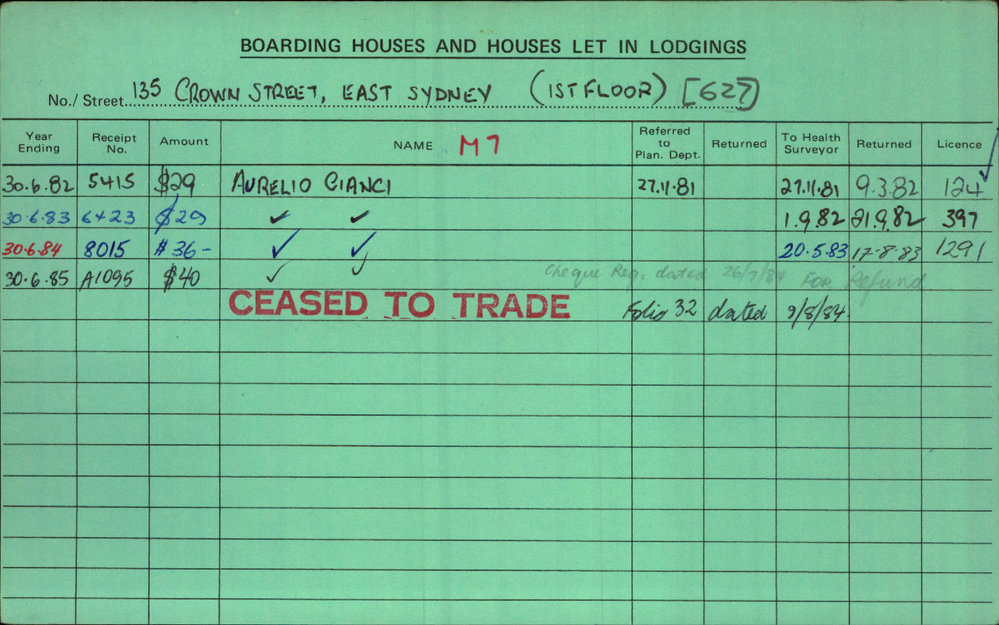 BOARDING HOUSES AND HOUSES LET IN LODGINGS
No./ Street 135 CROWN STREET, EAST SYDNEY (1ST FLOOR) [627]
Year Ending Receipt No. Amount NAME M7 Referred to Plan. Dept. Returned To Health Surveyor Returned Licence
30.6.82 5415 $29 AURELIO CIANCI 27.11.81 27.11.81 9.3.82 124 ✓
30.6.83 6423 $29 ✓ ✓ 1.9.82 21.9.82 397
30.6.84 8015 $36- ✓ ✓ 20.5.83 17.8.83 1291
30.6.85 A1095 $40 ✓ ✓ Cheque Req. dated 26/7/84 FOR Refund
CEASED TO TRADE Folio 32 dated 9/8/84